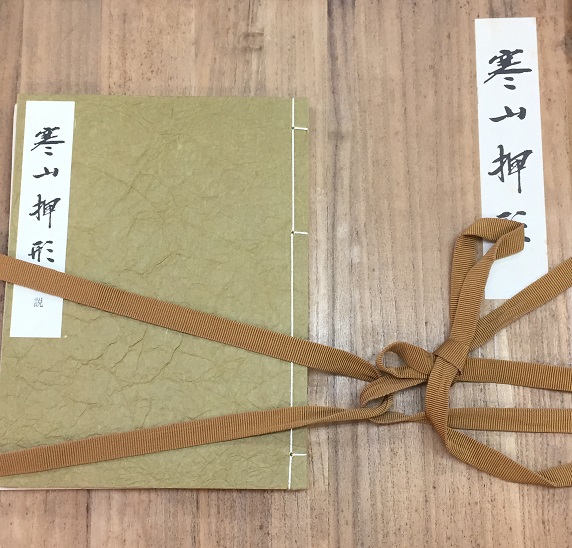 寒山押形
寒山押形 説